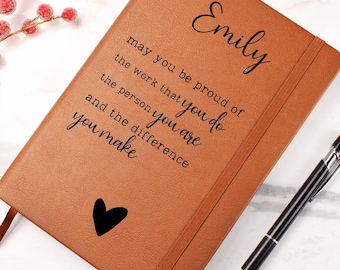 Emily
may you be proud of
the work that you do
the person you are
and the difference
you make